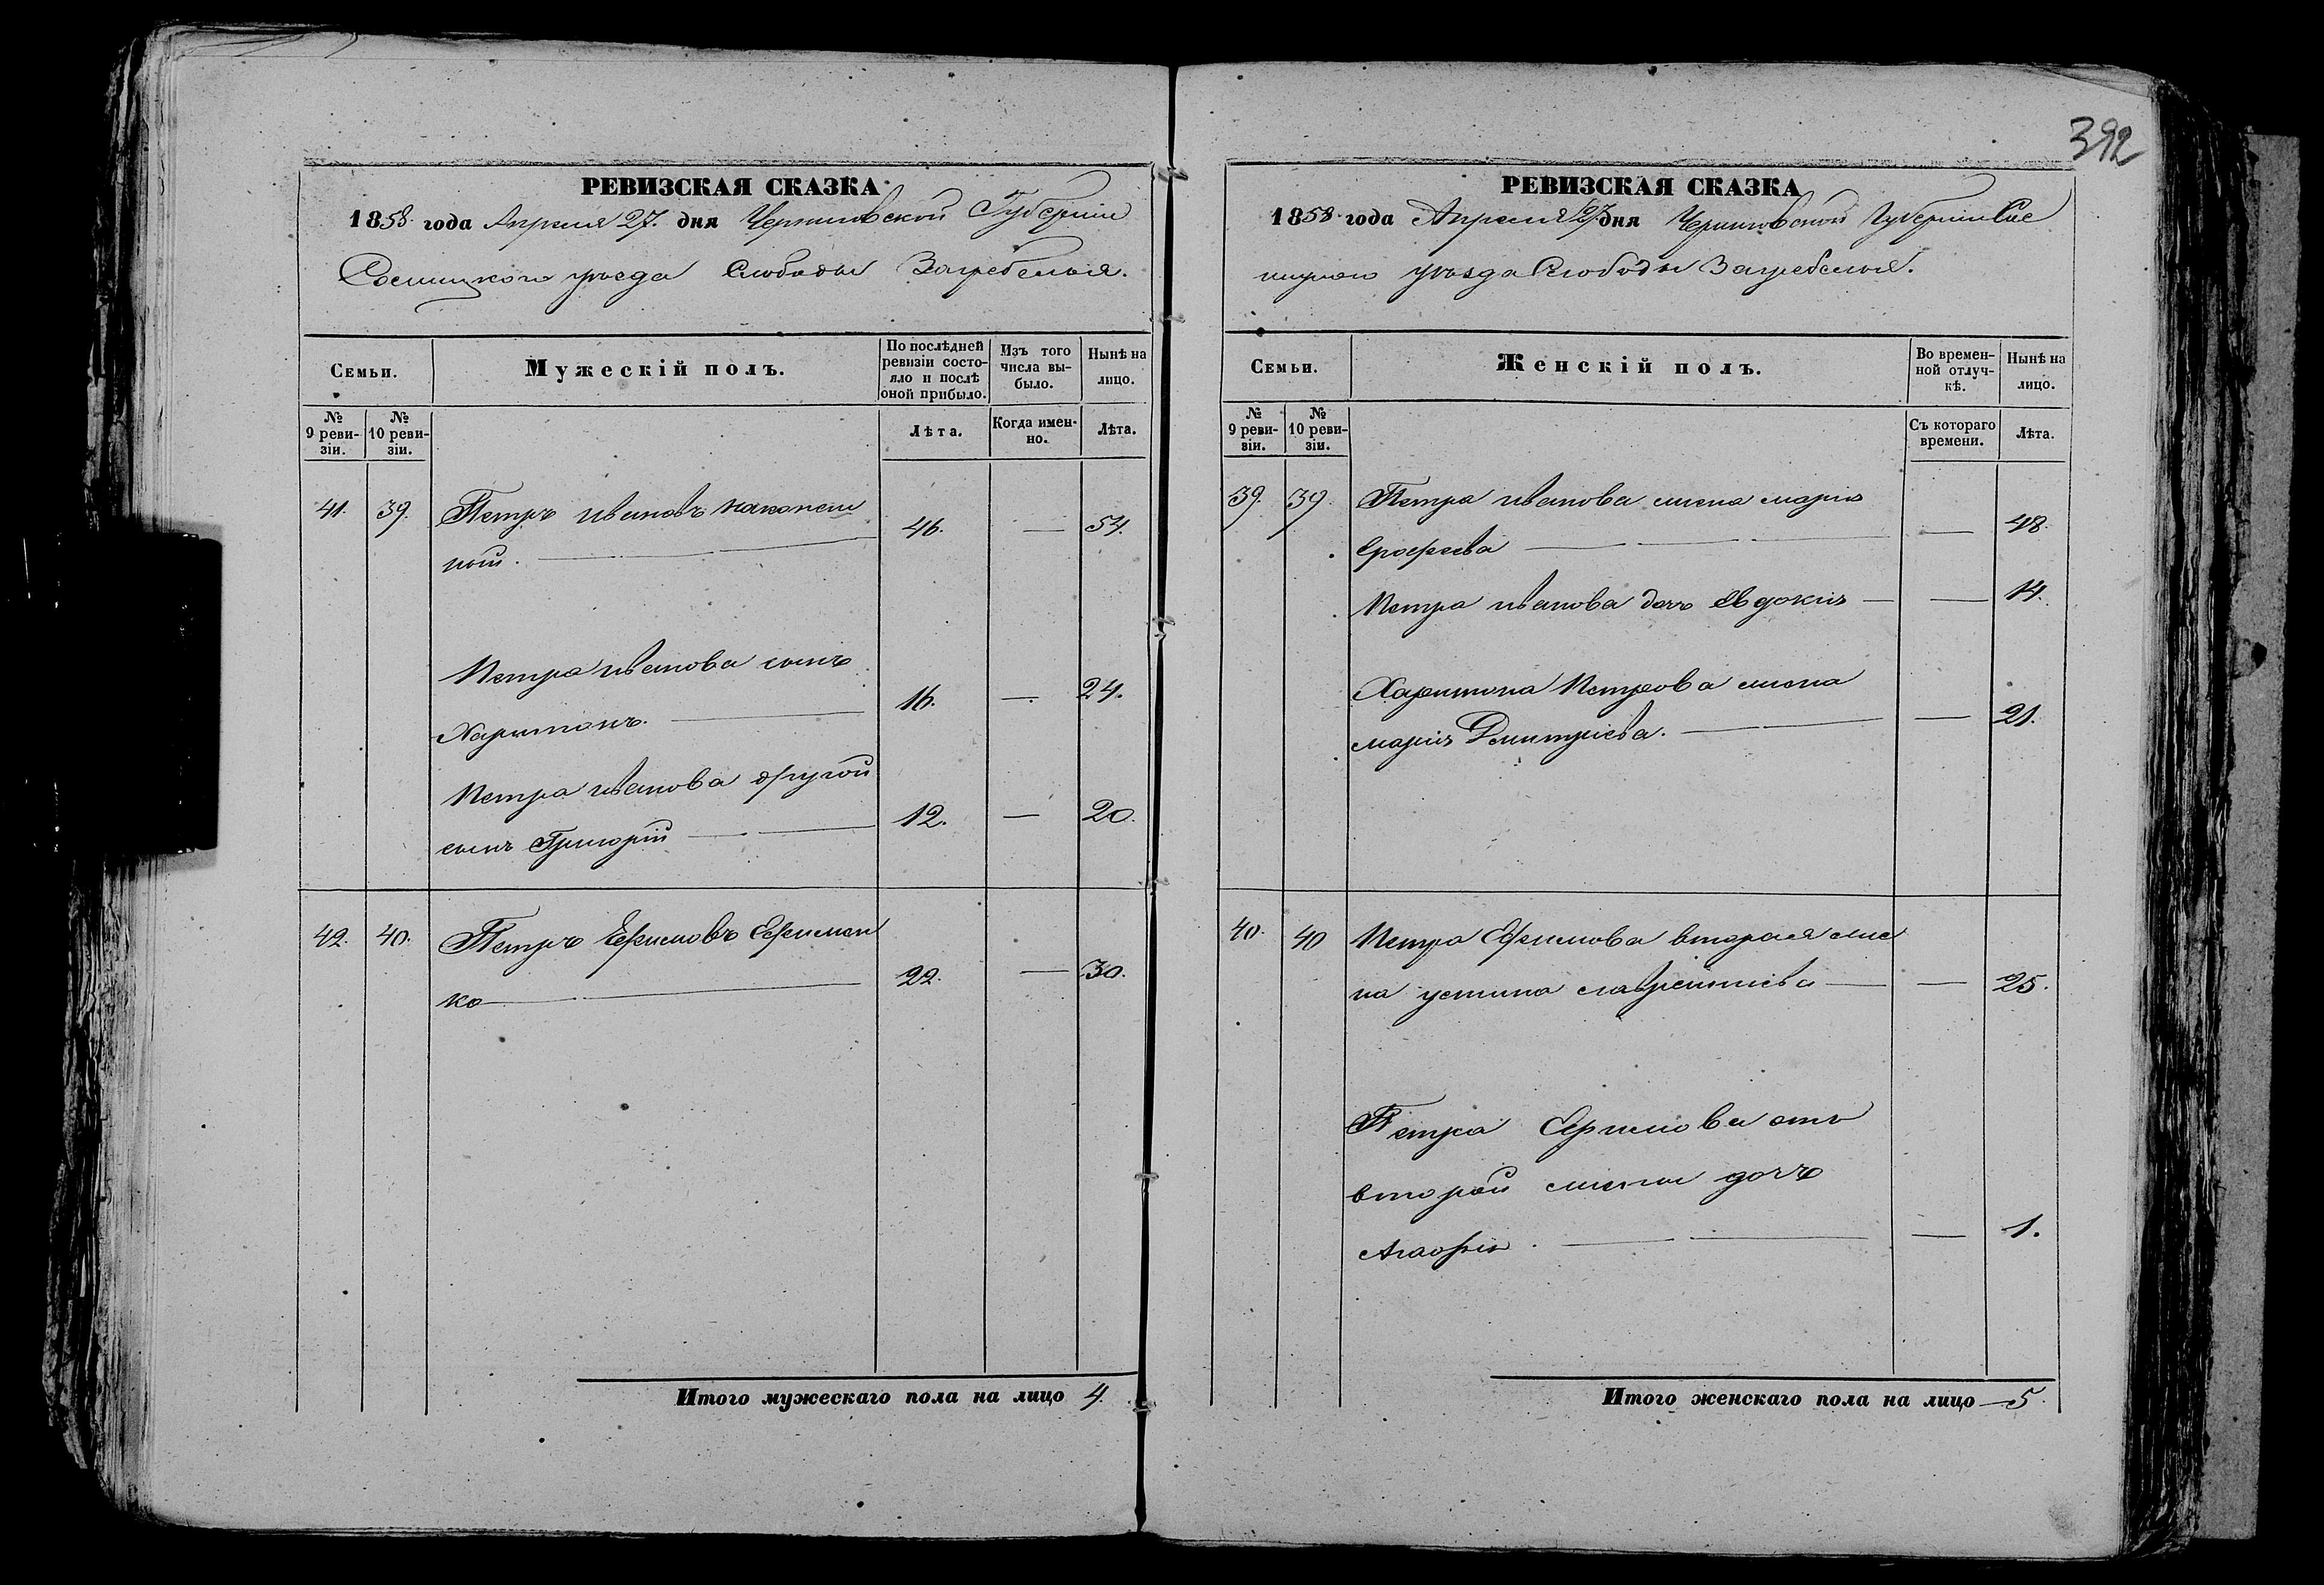 РЕВИЗСКАЯ СКАЗКА
1858 года Апреля 27. дня Черниговской Губернии
Сосницкого уезда Слободы Загребелья.
Семьи.
Мужескій полъ.
По послѣдней
ревизіи состо-
яло и послѣ
оной прибыло.
Изъ того
числа вы-
было.
Нынѣ на
лицо.
№
9 реви-
зіи.
№
10 реви-
зіи.
Лѣта.
Когда имен-
но.
Лѣта.
41. 39. Петръ Ивановъ
46. — 54.
Петра Иванова сынъ
Харитонъ. — 16. — 24.
Петра Иванова другой
сынъ Григорій — 12. — 20.
42. 40. Петръ Ефимовъ Ефимен
ко — 22. — 30.
Итого мужескаго пола на лицо 4.
392
РЕВИЗСКАЯ СКАЗКА
1858 года Апреля 27 дня Черниговской Губерніи Сос
ницкого уезда Слободы Загребелья.
Семьи.
Женскій полъ.
Во времен-
ной отлуч-
кѣ.
Нынѣ на
лицо.
№
9 реви-
зіи.
№
10 реви-
зіи.
Съ котораго
времени.
Лѣта.
39. 39. Петра Иванова жена Марія
Ерофеева — — 48.
Петра Иванова дочь Евдокія — — 14.
Харитона Петрова жена
Марія Дмитріева. — — 21.
40. 40 Петра Ефимова вторая же
на Устина Лаврентіева — — 25.
Петра Ефимова отъ
второй жены дочь
Агафія. — — 1.
Итого женскаго пола на лицо — 5.